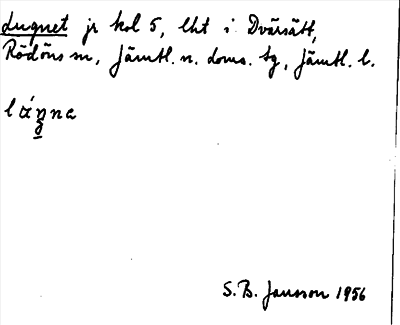 Lugnet jr kol 5, lht i Dvärsätt,
Rödöns sn, Jämtl. n. doms. tg, Jämtl. l.
S.B. Jansson 1956